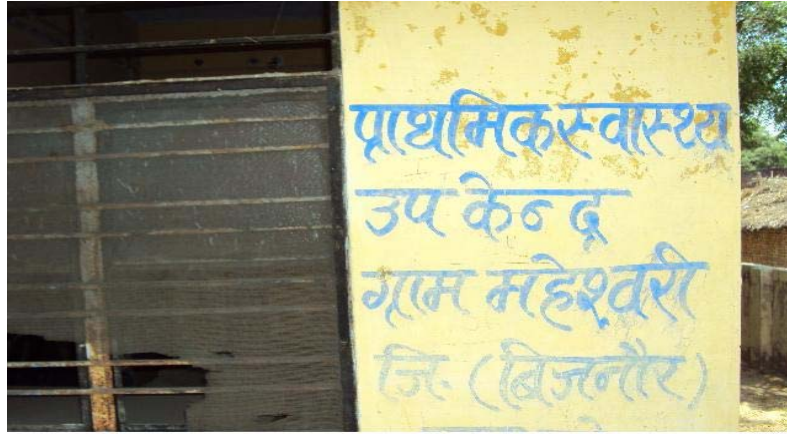 प्राथमिक स्वास्थ्य
उप केन्द्र
ग्राम महेश्वरी
जि. (बिजनौर)